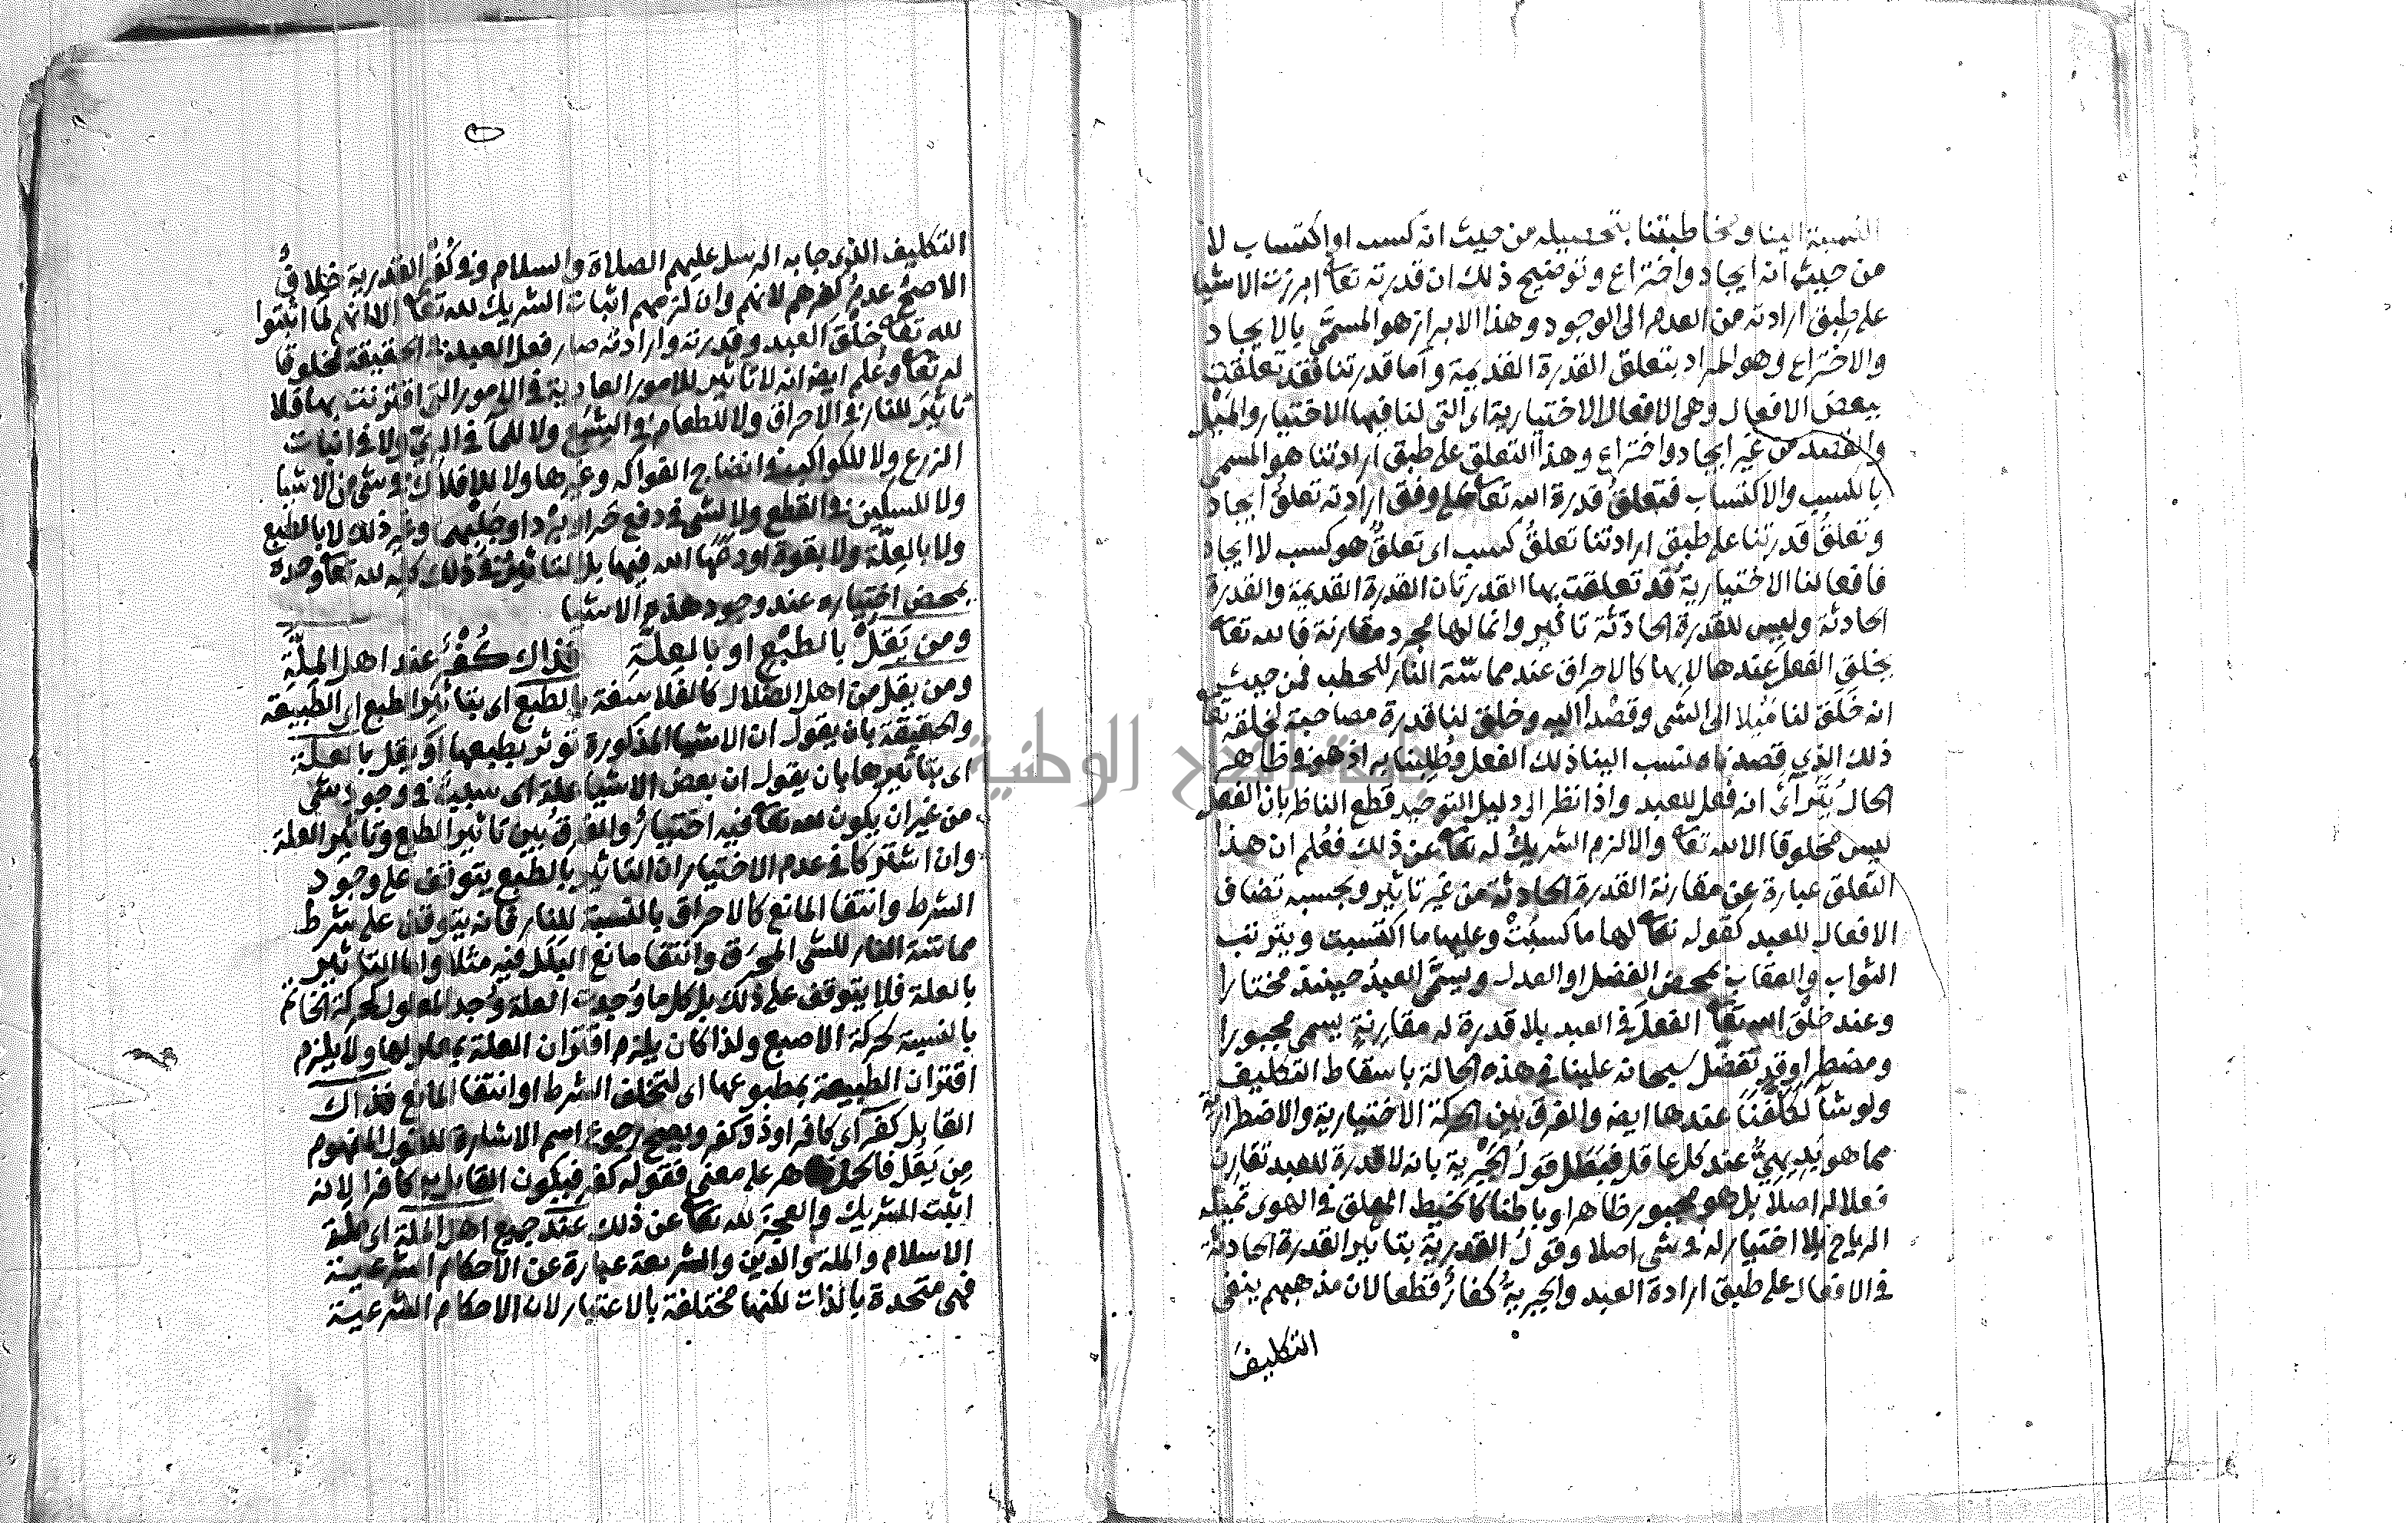 النسبة الينا ومخاطبتنا بتحصيله من حيث انه كسب او اكتساب لا
من حيث انه ايجاد واختراع وتوضيح ذلك ان قدرته تعا ابرزت الاشيا
على طبق ارادته من العدم الى الوجود وهذا الابراز هو المسمَّى بالايجاد
والاختراع وهو المراد بتعلق القدرة القديمة وأما قدرتنا فقد تعلقت
ببعض الافعال وهى الافعال الاختيارية اى التى لنا فيها الاختيار والمَيْل
والقصد من غير ايجاد واختراع وهذا التعلق على طبق ارادتنا هو المسمى
بالكسب والاكتساب فتعلقُ قدرة الله تعا على وفق ارادته تعلقُ ايجاد
وتعلقُ قدرتنا على طبق ارادتنا تعلقُ كسب اى تعلقٌ هو كسب لا ايجاد
فافعالنا الاختيارية قد تعلقت بها القدرتان القدرة القديمة والقدرة
الحادثة وليس للقدرة الحادثة تاثير وانما لها مجرد مقارنة فالله تعا
يخلق الفعل عندها لا بها كالاحراق عند مماسّة النار للحطب فمن حيث
انه خَلَق لنا مَيْلا الى الشى وقصْدا اليه وخلق لنا قدرة مصاحبة لخلقه تعا
ذلك الذي قصدناه نسب الينا ذلك الفعل وطُلبنا به اذ هو فى ظاهر
الحال يُتَرآئ انه فعل للعبد واذا نظر الى دليل التوحيد قطع الناظر بان الفعل
ليس مخلوقا الا لله تعا والا لزم الشريك له تعا عن ذلك فعُلم ان هذا
التعلق عبارة عن مقارنة القدرة الحادثة من غير تاثير وبحسبه تضاف
الافعال للعبد كقوله تعا لها ما كسبَتْ وعليها ما اكتسبت ويترتب
الثواب والعقاب بمحض الفضل او العدل ويسمَّى العبدُ حينئذ مختارا
وعند خلْق الله تعا الفعلَ فى العبد بلا قدرة له مقارنةٍ يسمى مجبورا
ومضطرا وقد تفضل سبحانه علينا فى هذه الحالة باسقاط التكليف
ولو شآ لكلَّفنا عندها ايضه والفرق بين الحركة الاختيارية والاضطرارية
مما هو بَدِيهيٌّ عند كل عاقل فبَطَل قولُ الجَبْرية بانه لا قدرة للعبد تقارن
فعلا له اصلا بل هو مجبور ظاهرا وباطنا كالخيط المعلق فى الهوى تميله
الرياح بلا اختيار له فى شى اصلا وقولُ القدرية بتاثير القدرة الحادثة
فى الافعال على طبق ارادة العبد والجبريةُ كفارٌ قطعا لان مذهبهم ينفى
التكليفَ
التكليف الذى جا به الرسل عليهم الصلاة والسلام وفى كُفْر القدرية خلافٌ
الاصحُّ عدمُ كفرهم لانهم وان لزمهم اثبات الشريك لله تعا الا انهم لما اثبتوا
لله تعا خلْق العبد وقدرته وارادته صار فعل العبد فى الحقيقة مخلوقا
له تعا وعُلم ايضه انه لا تاثير للامور العادية فى الامور التى اقترنت بها فلا
تاثير للنار فى الاحراق ولا للطعام فى الشِبَع ولا للمآ فى الريّ ولا فى انبات
الزرع ولا للكواكب فى انضاج الفواكه وغيرها ولا للافلاك فى شى من الاشيا
ولا للسكين فى القطع ولا لشى فى دفع حَر او بَرْد او جلبهما وغير ذلك لا بالطبع
ولا بالعِلّة ولا بقوة اودعَها الله فيها بل التاثيرُ فى ذلك كلِّه لله تعا وحده
بمحض اختياره عند وجود هذه الاشيا
ومن يَقُلْ بالطبْع او بالعِلّةِ فذاك كُفْرٌ عند اهل المِلَّةِ
ومن يقل من اهل الضلال كالفلاسفة بالطبع اى بتاثير الطبع اى الطبيعة
والحقيقة بان يقول ان الاشيا المذكورة تؤثر بطبعها أو يقل بالعلة
اى بتاثيرها بان يقول ان بعض الاشيا علة اى سببٌ فى وجود شى
من غير ان يكون لله تعا فيه اختيارٌ والفرقُ بين تاثير الطبع وتاثير العلة
وان اشتركا فى عدم الاختيار ان التاثير بالطبع يتوقف على وجود
الشرط وانتفا المانع كالاحراق بالنسبة للنار فانه يتوقف على شرط
مماسّة النار للشى المحرَق وانتفا مانع البَلَل فيه مثلا واما التاثير
بالعلة فلا يتوقف على ذلك بل كل ما وُجدت العلة وُجد المعلول كحركة الخاتم
بالنسبة لحركة الاصبع ولذا كان يلزم اقتران العلة بمعلولها ولا يلزم
اقتران الطبيعة بمطبوعها اى لتخلف الشرط او انتفا المانع فذاك
القايل كفر آى كافر او ذو كفر ويصح رجوع اسم الاشارة للقول المفهوم
مِن يَقُل فالحمل ظاهر على معنى فقوله كفر فيكون القايل به كافرا لانه
اثبت الشريك والعجز لله تعا عن ذلك عند جميع اهل الملة اى ملة
الاسلام والملة والدين والشريعة عبارة عن الاحكام الشرعية
فهى متحدة بالذات لكنها مختلفة بالاعتبار لان الاحكام الشرعية
جامعة النجاح الوطنية